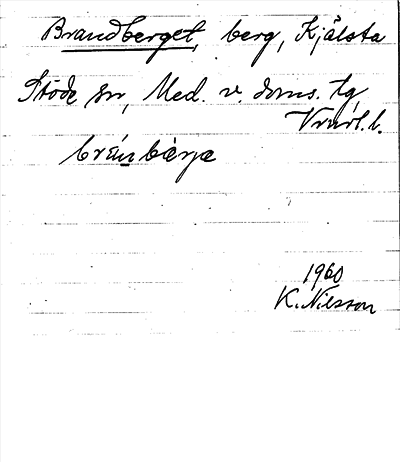 Brandberget, berg, Kjälsta
Stöde sn, Med. v. doms. tg
Vrnrl. l.
bréinbærja
1960
K. Nilsson